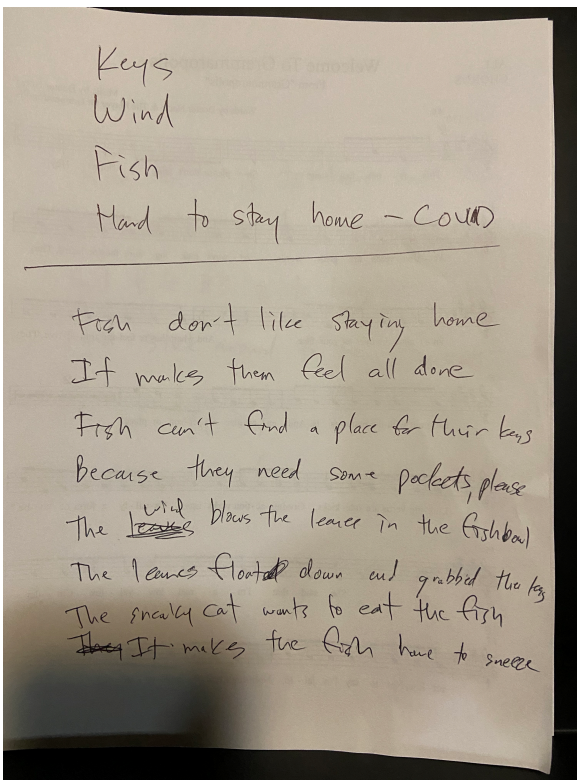 Keys
Wind
Fish
Hard to stay home - COVID
Fish don't like staying home
It makes them feel all alone
Fish can't find a place for their keys
Because they need some pockets, please
The wind blows the leaves in the fishbowl
The leaves float down and grabbed the keys
The sneaky cat wants to eat the fish
It makes the fish have to sneeze